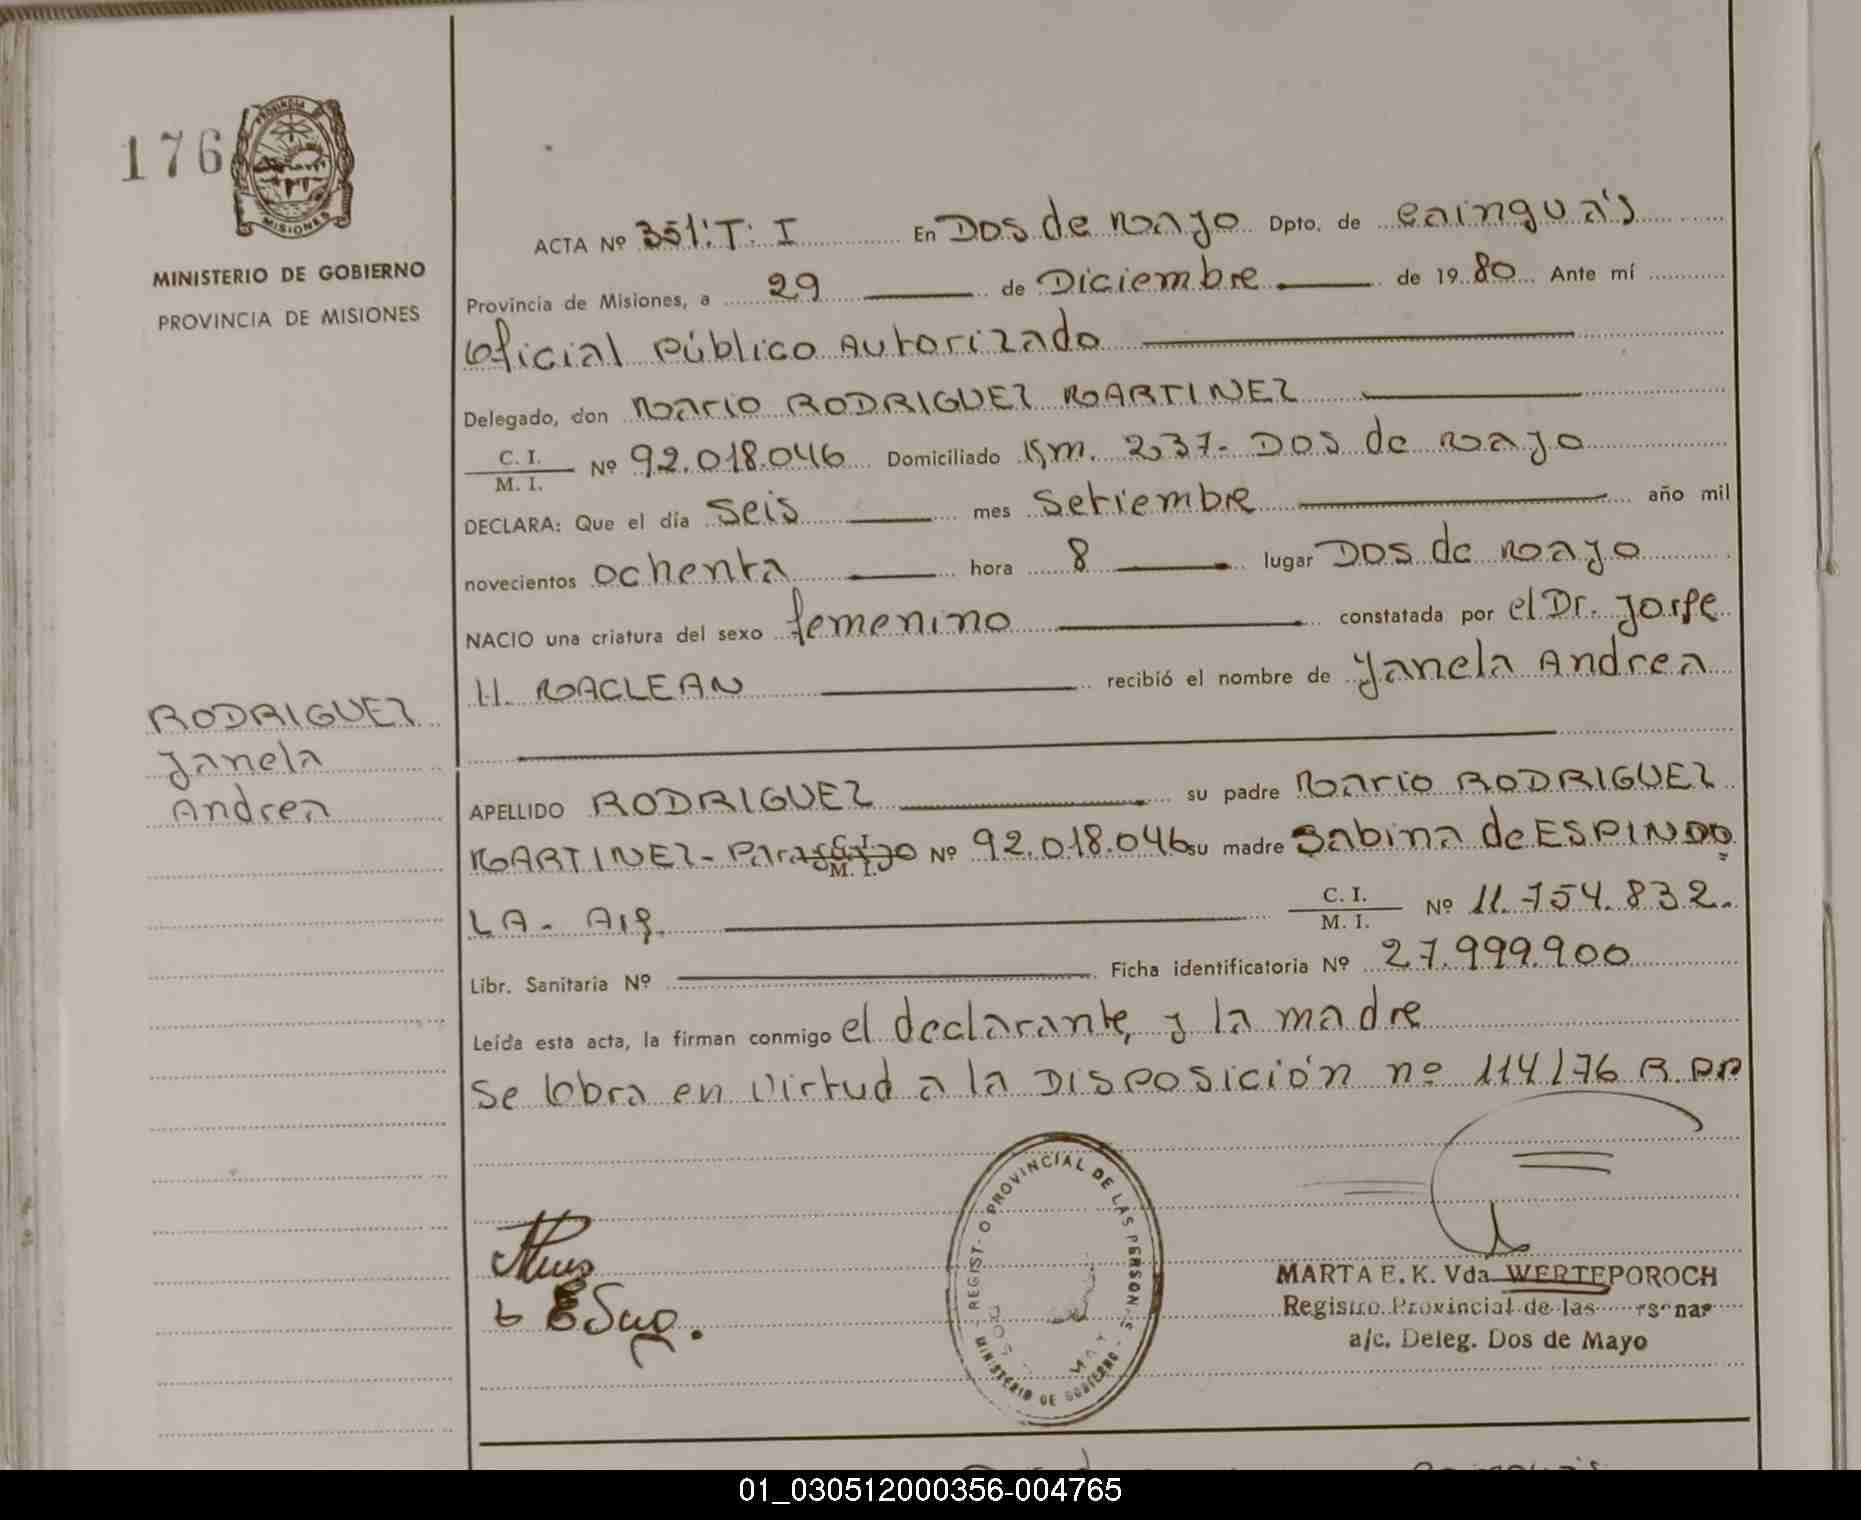 176
PROVINCIA
MISIONES
MINISTERIO DE GOBIERNO
PROVINCIA DE MISIONES
RODRIGUEZ
Yanela
Andrea
ACTA Nº 351:T: I En Dos de Mayo Dpto. de Cainguá's
Provincia de Misiones, a 29 de Diciembre de 1980 Ante mí
Oficial Público Autorizado
Delegado, don Mario RODRIGUEZ MARTINEZ
C. I.
M. I. Nº 92.018.046 Domiciliado Km. 237- Dos de Mayo
DECLARA: Que el día seis mes Setiembre año mil
novecientos ochenta hora 8 lugar Dos de Mayo
NACIO una criatura del sexo femenino constatada por el Dr. Jorge
H. MACLEAN recibió el nombre de Yanela Andrea
APELLIDO RODRIGUEZ su padre Mario RODRIGUEZ
MARTINEZ- Paraguayo C. I. M. I. Nº 92.018.046 su madre Sabina de ESPINDO
LA- Arg. C. I. M. I. Nº 11.754.832.
Libr. Sanitaria Nº Ficha identificatoria Nº 27.999.900
Leída esta acta, la firman conmigo el declarante, y la madre
se labra en virtud a la Disposición nº 114/76 R.PP
REGIST O PROVINCIAL DE LAS PERSON S
MINISTERIO DE GOBIERNO
MARTA E. K. Vda WERTEPOROCH
Registro Provincial de las rsonas
a/c. Deleg. Dos de Mayo
01_030512000356-004765